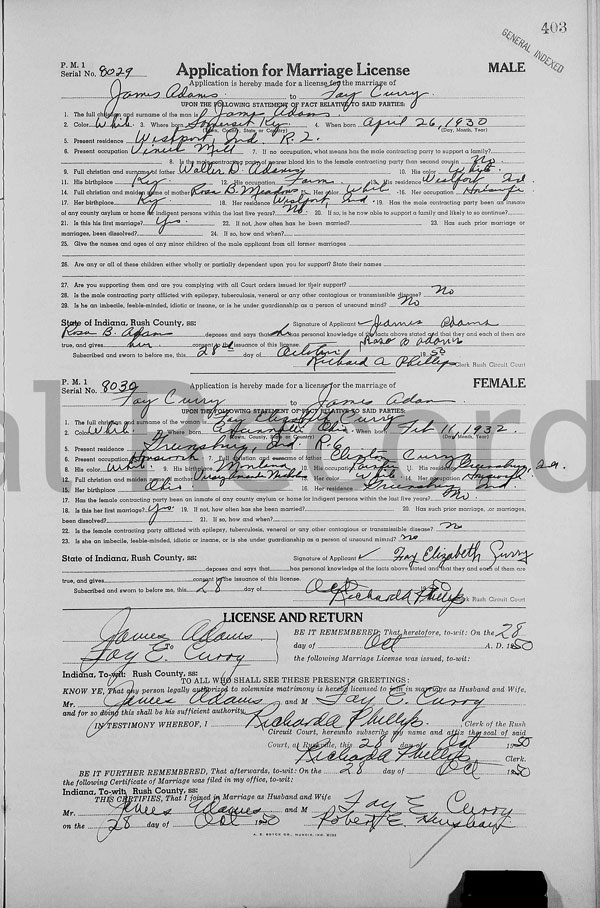 403
GENERAL INDEXED
P. M. 1
Serial No. 8029 Application for Marriage License MALE
Application is hereby made for a license for the marriage of
James Adams to Fay Curry
UPON THE FOLLOWING STATEMENT OF FACT RELATIVE TO SAID PARTIES:
1. The full christian and surname of the man is James Adams
2. Color White 3. Where born Somerset Ky. 4. When born April 26, 1930
(Town, County, State or Country) (Day, Month, Year)
5. Present residence Westport, Ind. R. 2.
6. Present occupation Mill 7. If no occupation, what means has the male contracting party to support a family?
8. Is the male contracting party nearer blood kin to the female contracting party than second cousin No
9. Full christian and surname of father Walter D. Adams 10. His color White
11. His birthplace Ky. 12. His occupation Farm 13. His residence Westport, Ind.
14. Full christian and maiden name of mother Rosa B. Meadows 15. Her color White 16. Her occupation Housewife
17. Her birthplace Ky. 18. Her residence Westport, Ind. 19. Has the male contracting party been an inmate
of any county asylum or home for indigent persons within the last five years? No. 20. If so, is he now able to support a family and likely to so continue?
21. Is this his first marriage? Yes. 22. If not, how often has he been married? 23. Has such prior marriage or
marriages, been dissolved? 24. If so, how and when?
25. Give the names and ages of any minor children of the male applicant from all former marriages
26. Are any or all of these children either wholly or partially dependent upon you for support? State their names
27. Are you supporting them and are you complying with all Court orders issued for their support?
28. Is the male contracting party afflicted with epilepsy, tuberculosis, veneral or any other contagious or transmissible disease? No
29. Is he an imbecile, feeble-minded, idiotic or insane, or is he under guardianship as a person of unsound mind? No
State of Indiana, Rush County, ss: Signature of Applicant James Adams
Rosa B. Adams deposes and says that she has personal knowledge of the facts above stated and that they and each of them are
true, and gives her consent to the issuance of this license. Rosa B Adams
Subscribed and sworn to before me, this 28 day of October 1950
Richard A. Phillips Clerk Rush Circuit Court
P. M. 1
Serial No. 8030 Application is hereby made for a license for the marriage of FEMALE
Fay Curry to James Adam
UPON THE FOLLOWING STATEMENT OF FACT RELATIVE TO SAID PARTIES:
1. The full christian and surname of the woman Fay Elizabeth Curry
2. Color White 3. Where born Ohio. 4. When born Feb 11, 1932.
(Town, County, State or Country) (Day, Month, Year)
5. Present residence Greensburg, Ind. R. 6
6. Present occupation Housework 7. Full christian and surname of father Elinton Curry
8. His color White 9. His birthplace Montana 10. His occupation 11. His residence Greensburg, Ind.
12. Full christian and maiden name of mother 13. Her color White 14. Her occupation Housewife
15. Her birthplace Ohio 16. Her residence Greensburg Ind.
17. Has the female contracting party been an inmate of any county asylum or home for indigent persons within the last five years? No.
18. Is this her first marriage? Yes 19. If not, how often has she been married? 20. Has such prior marriage, or marriages,
been dissolved? 21. If so, how and when?
22. Is the female contracting party afflicted with epilepsy, tuberculosis, veneral or any other contagious or transmissible disease? No
23. Is she an imbecile, feeble-minded, idiotic or insane, or is she under guardianship as a person of unsound mind? No
State of Indiana, Rush County, ss: Signature of Applicant Fay Elizabeth Curry
deposes and says that has personal knowledge of the facts above stated and that they and each of them are
true, and gives consent to the issuance of this license.
Subscribed and sworn to before me, this 28 day of Oct 1950
Richard A Phillips Clerk Rush Circuit Court
LICENSE AND RETURN
James Adams
Fay E. Curry
BE IT REMEMBERED, That heretofore, to-wit: On the 28
day of Oct A. D. 1950
the following Marriage License was issued, to-wit:
Indiana, To-wit: Rush County, ss:
TO ALL WHO SHALL SEE THESE PRESENTS GREETINGS:
KNOW YE, That any person legally authorized to solemnize matrimony is hereby licensed to join in marriage as Husband and Wife,
Mr. James Adams and M Fay E. Curry
and for so doing this shall be his sufficient authority.
IN TESTIMONY WHEREOF, I Richard A Phillips. Clerk of the Rush
Circuit Court, hereunto subscribe my name and affix the seal of said
Court, at Rushville, this 28 day of Oct 1950
Richard A Phillips Clerk.
BE IT FURTHER REMEMBERED, That afterwards, to-wit: On the 28 day of Oct 1950
the following Certificate of Marriage was filed in my office, to-wit:
Indiana, To-wit: Rush County, ss:
THIS CERTIFIES, That I joined in Marriage as Husband and Wife
Mr. James Adams and M Fay E Curry
on the 28 day of Oct 1950 Robert E.
A. E. BOYCE CO., MUNCIE, IND.